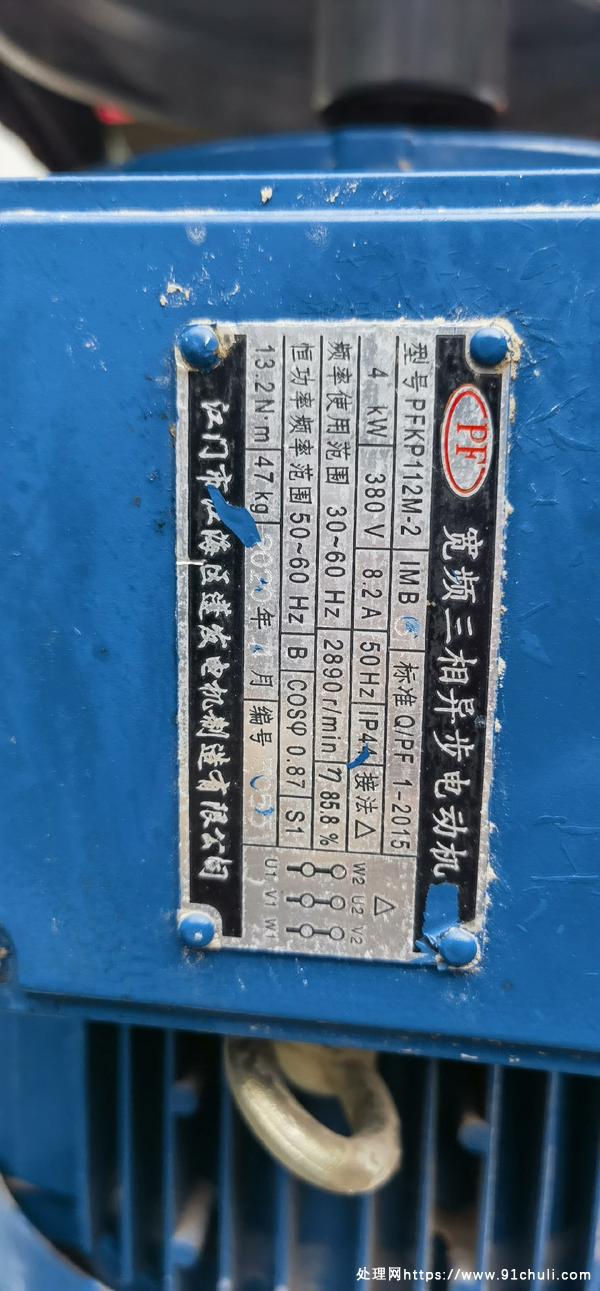 PF 宽频三相异步电动机
型号 PFKP112M-2 IM B 标准 Q/PF 1-2015
4 kW 380 V 8.2 A 50 Hz IP44 接法 △
频率使用范围 30~60 Hz 2890 r/min η 85.8 %
恒功率频率范围 50~60 Hz B COSφ 0.87 S1
13.2 N·m 47 kg 年 月 编号
△
W2 U2 V2
U1 V1 W1
江门市江海区蓬发电机制造有限公司
处理网https://www.91chuli.com